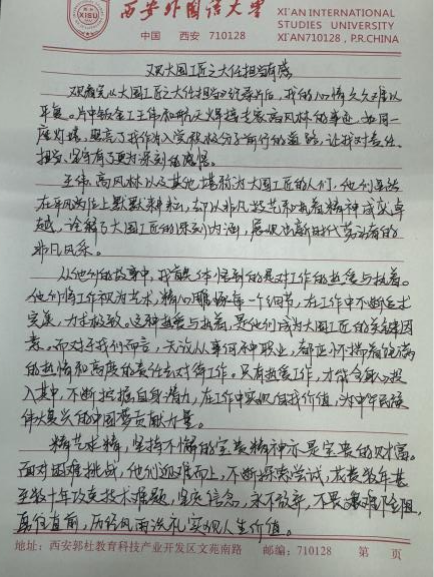 西安外国语大学
XI'AN INTERNATIONAL
STUDIES UNIVERSITY
中国 西安 710128
XI'AN710128, P.R.CHINA
XISU
观大国工匠之大任担当有感
观看完《大国工匠之大任担当》纪录片后，我的心情久久难以
平复。片中钣金工王伟和航天焊接专家高凤林的事迹，如同一
座灯塔，照亮了我作为入党积极分子前行的道路，让我对责任、
担当、坚守有了更为深刻的感悟。
王伟、高凤林以及其他堪称为大国工匠的人们，他们虽然
在平凡岗位上默默耕耘，却以非凡技艺和执着精神成就卓
越，诠释了大国工匠的深刻内涵，展现出新时代劳动者的
非凡风采。
从他们的故事中，我首先体悟到的是对工作的热爱与执着。
他们将工作视为艺术，精心雕琢每一个细节，在工作中不断追求
完美，力求极致。这种热爱与执着，是他们成为大国工匠的关键因
素。而对于我们而言，无论从事何种职业，都应怀揣着饱满
的热情和高度的责任去对待工作。只有热爱工作，才能全身心投
入其中，不断挖掘自身潜力，在工作中实现自我价值，为中华民族
伟大复兴的中国梦贡献力量。
精艺求精，坚持不懈的宝贵精神亦是宝贵的财富。
面对困难挑战，他们迎难而上，不断探索尝试，花费数年甚
至数十年攻克技术难题，坚定信念，永不放弃，不畏艰难险阻，
勇往直前，历经风雨洗礼，实现人生价值。
地址：西安郭杜教育科技产业开发区文苑南路 邮编：710128 第 页